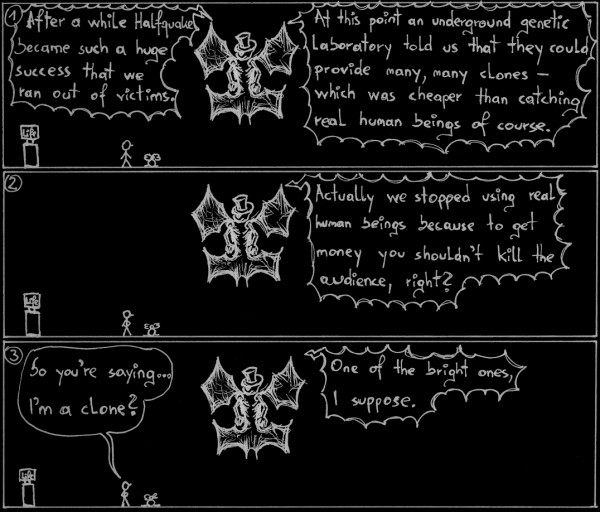 1
After a while Halfquake
became such a huge
success that we
ran out of victims.
At this point an underground genetic
Laboratory told us that they could
provide many, many clones –
which was cheaper than catching
real human beings of course.
Life
2
Actually we stopped using real
human beings because to get
money you shouldn't kill the
audience, right?
Life
3
So you're saying...
I'm a clone?
One of the bright ones,
I suppose.
Life